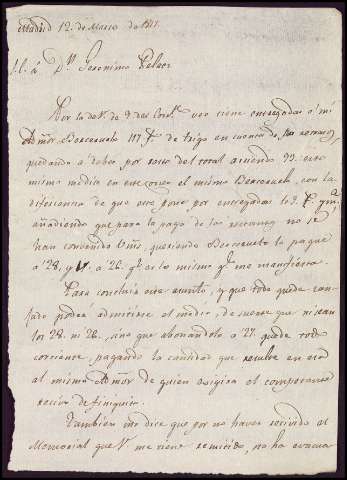 Madrid 12 de Marzo de
á Dn. Geronimo Pelaez
Por la de V. de 9 del Corrte. veo tiene entregadas á mi
Admor Berceruelo 117 fs. de trigo en cuenta de las rentas
quedando á deber por resto del total acuerdo 93. esto
mismo medice en ese correo el mismo Berceruelo, con la
diferencia de que este pone por entregadas
añadiendo que para la paga de las restantes no se
han convenido Vms, queriendo Berceruelo la pague
a 28, y V. a 26. qe. es lo mismo qe. me manifiesta.
Para concluir este asunto, y que todo quede
podrá admitirse el medio, de suerte que ni sean
los 28. ni 26, sino que abonandolo a 27. quede todo
corriente, pagando la cantidad que resulte en eso
al mismo Admor de quien exigira el correspondiente
recivo de finiquito.
Tambien me dice que por no haver recivido el
Memorial que V. me tiene remitido, no ha evacua